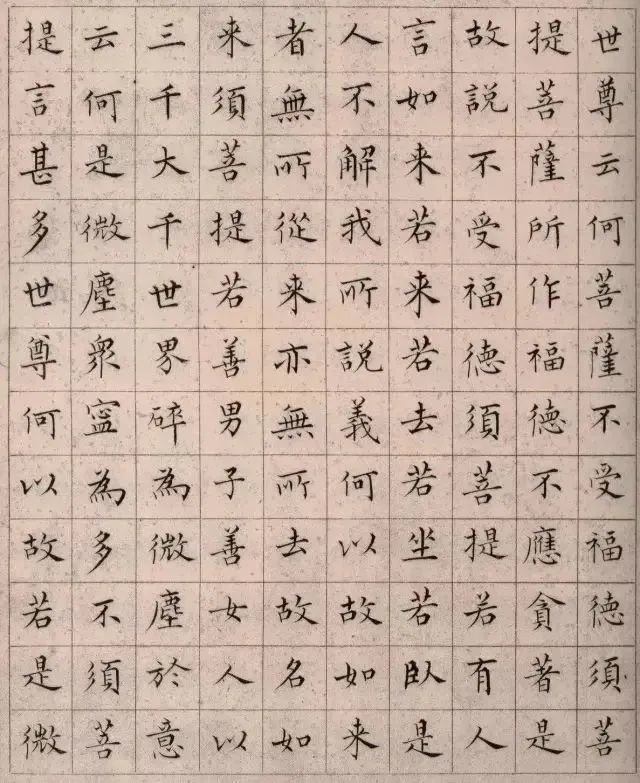 世尊云何菩薩不受福德須菩
提菩薩所作福德不應貪著是
故説不受福德須菩提若有人
言如来若来若去若坐若臥是
人不解我所說義何以故如来
者無所從来亦無所去故名如
来須菩提若善男子善女人以
三千大千世界碎為微塵於意
云何是微塵眾寍為多不須菩
提言甚多世尊何以故若是微